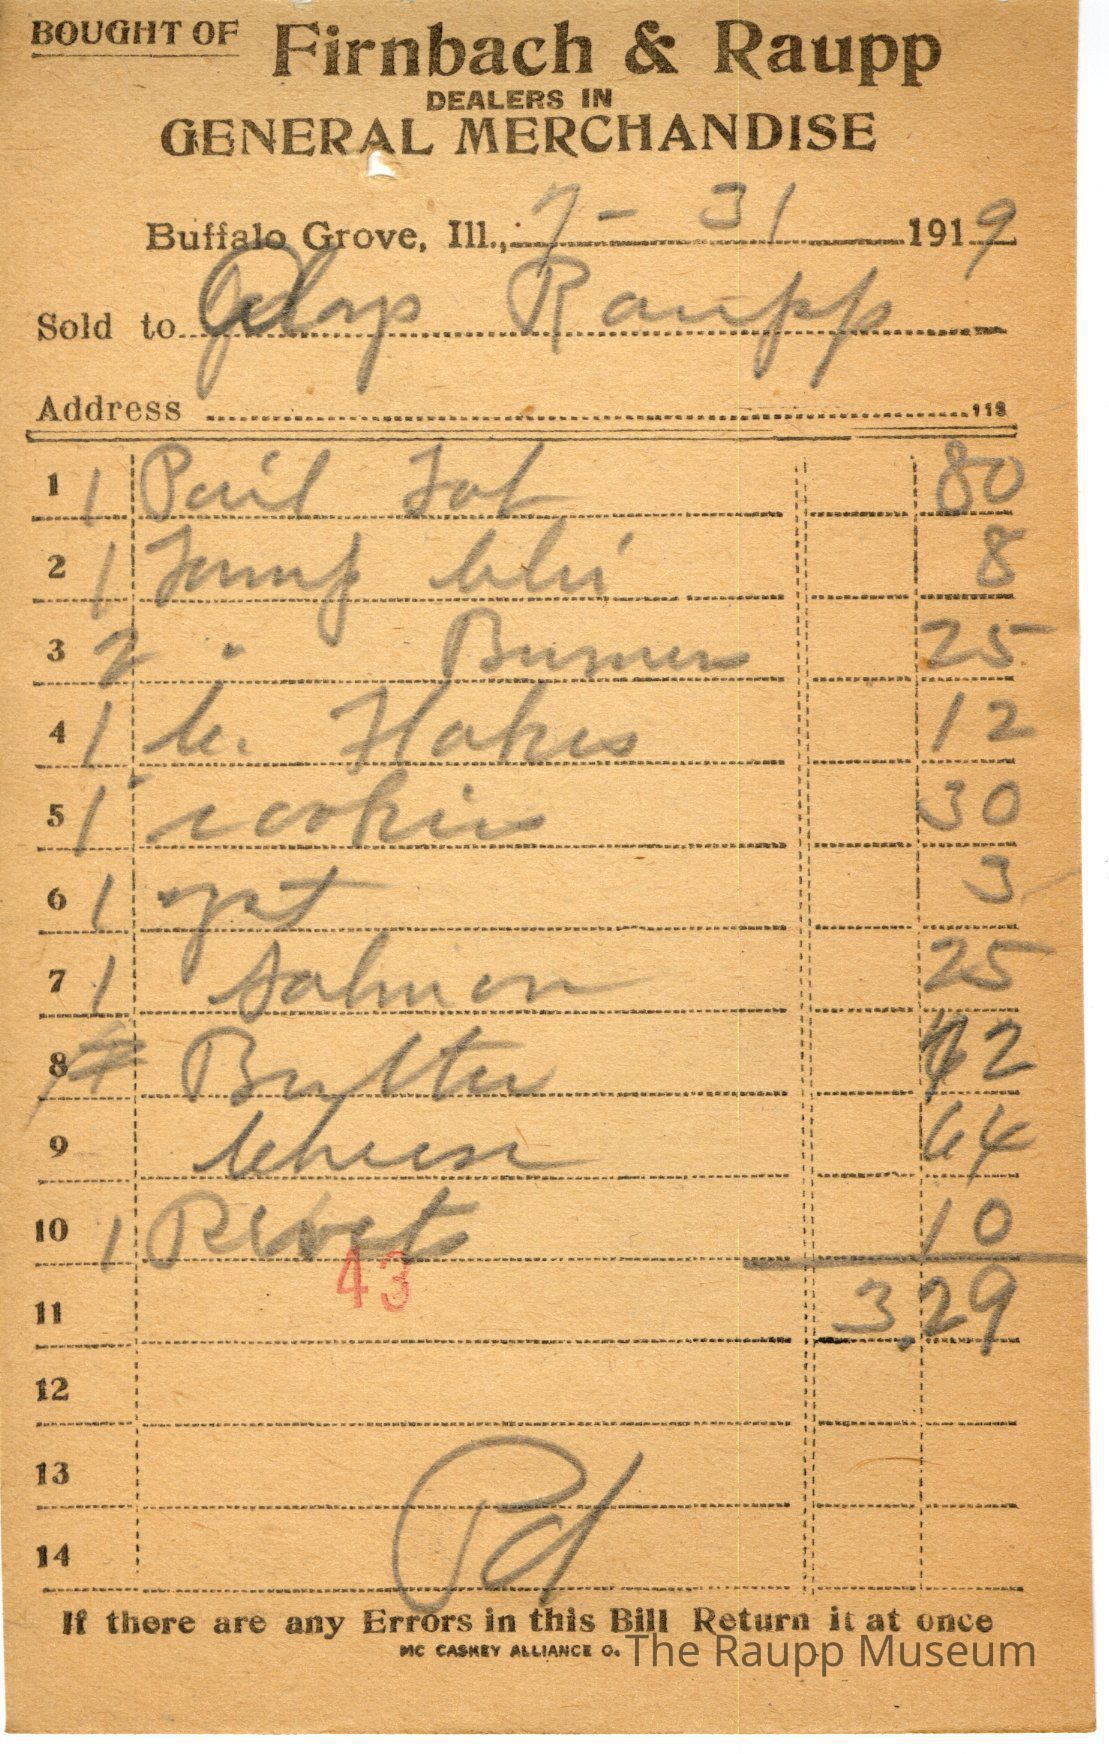 BOUGHT OF Firnbach & Raupp
DEALERS IN
GENERAL MERCHANDISE
Buffalo Grove, Ill., 7 - 31 1919
Sold to Raupp
Address 118
1 1 Pail Tob 80
2 1 8
3 2 " Burners 25
4 1 C. Flakes 12
5 1 " cookies 30
6 1 3
7 1 Salmon 25
8 Butter 42
9 Cheese 64
10 1 Rivets 10
43
11 3.29
12
13
14
Pd
If there are any Errors in this Bill Return it at once
MC CASKEY ALLIANCE O.
The Raupp Museum